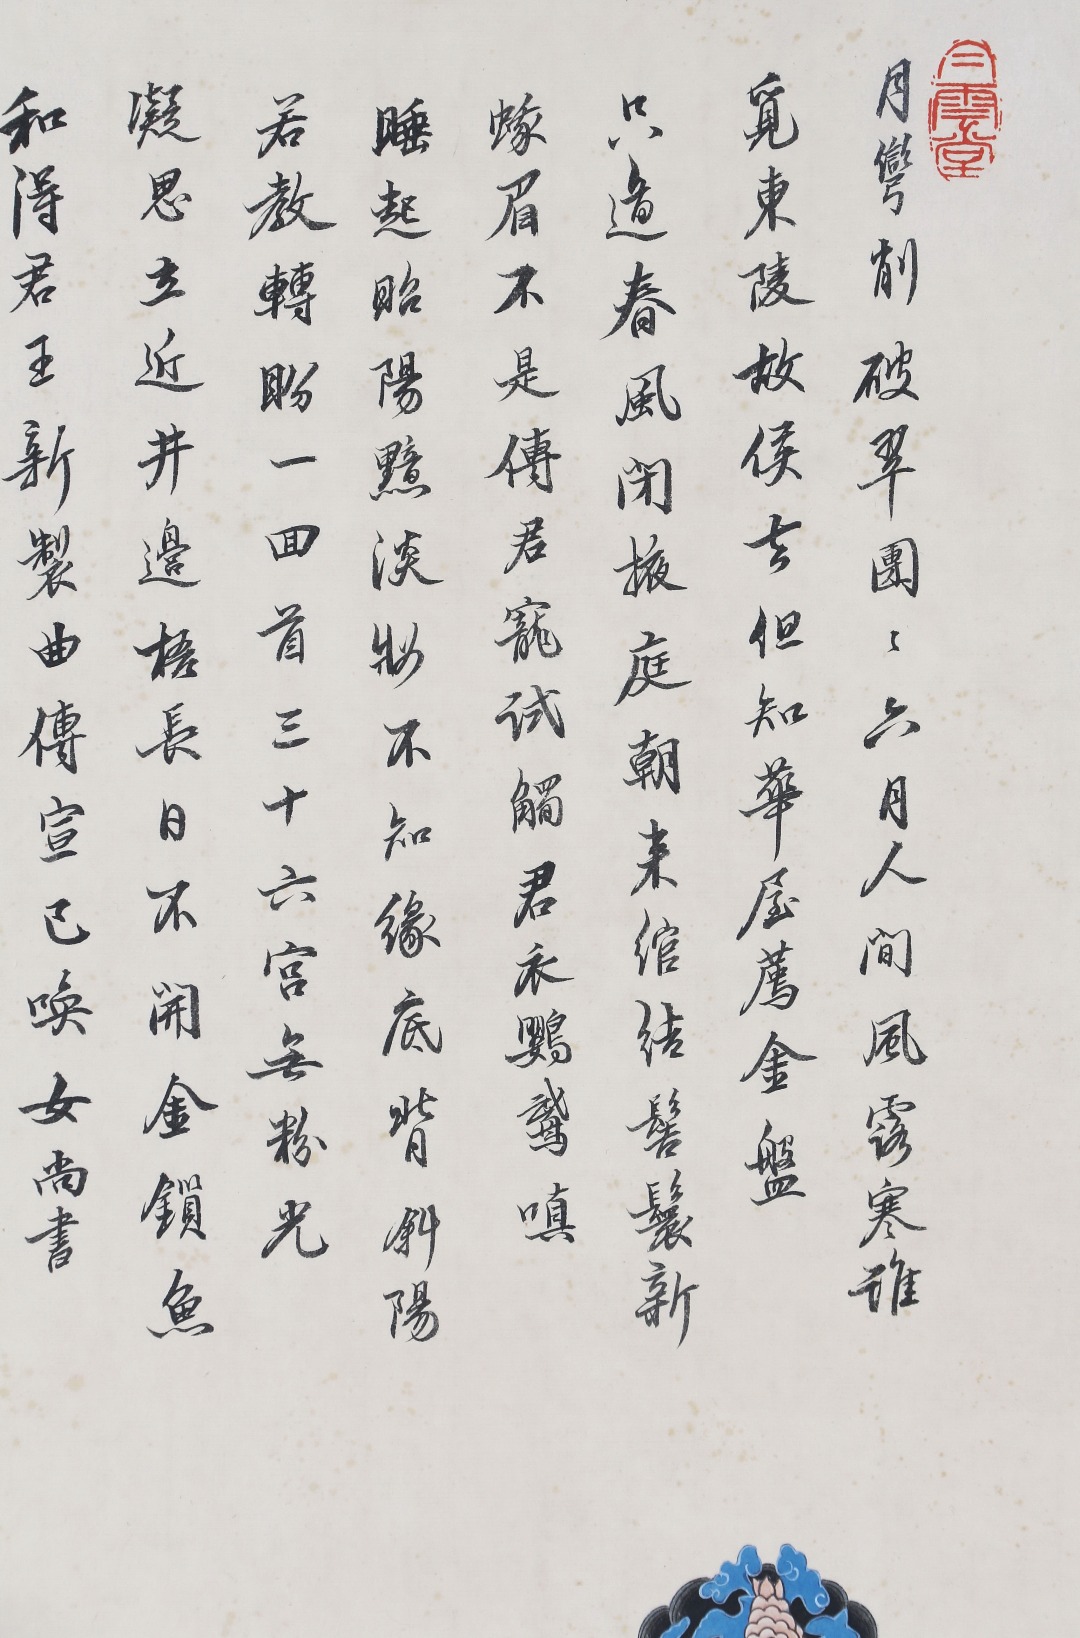 雲堂
月彎削破翠團〻六月人間風露寒誰
覓東陵故侯去但知華屋薦金盤
只道春風閉掖庭朝来綰結髻鬟新
蛾眉不是傳君寵試觸君衣鸚鵡嗔
睡起昭陽黯淡妝不知緣底背斜陽
若教轉盼一囬首三十六宮無粉光
凝思立近井邊梧長日不開金鎖魚
和得君王新製曲傳宣已喚女尚書